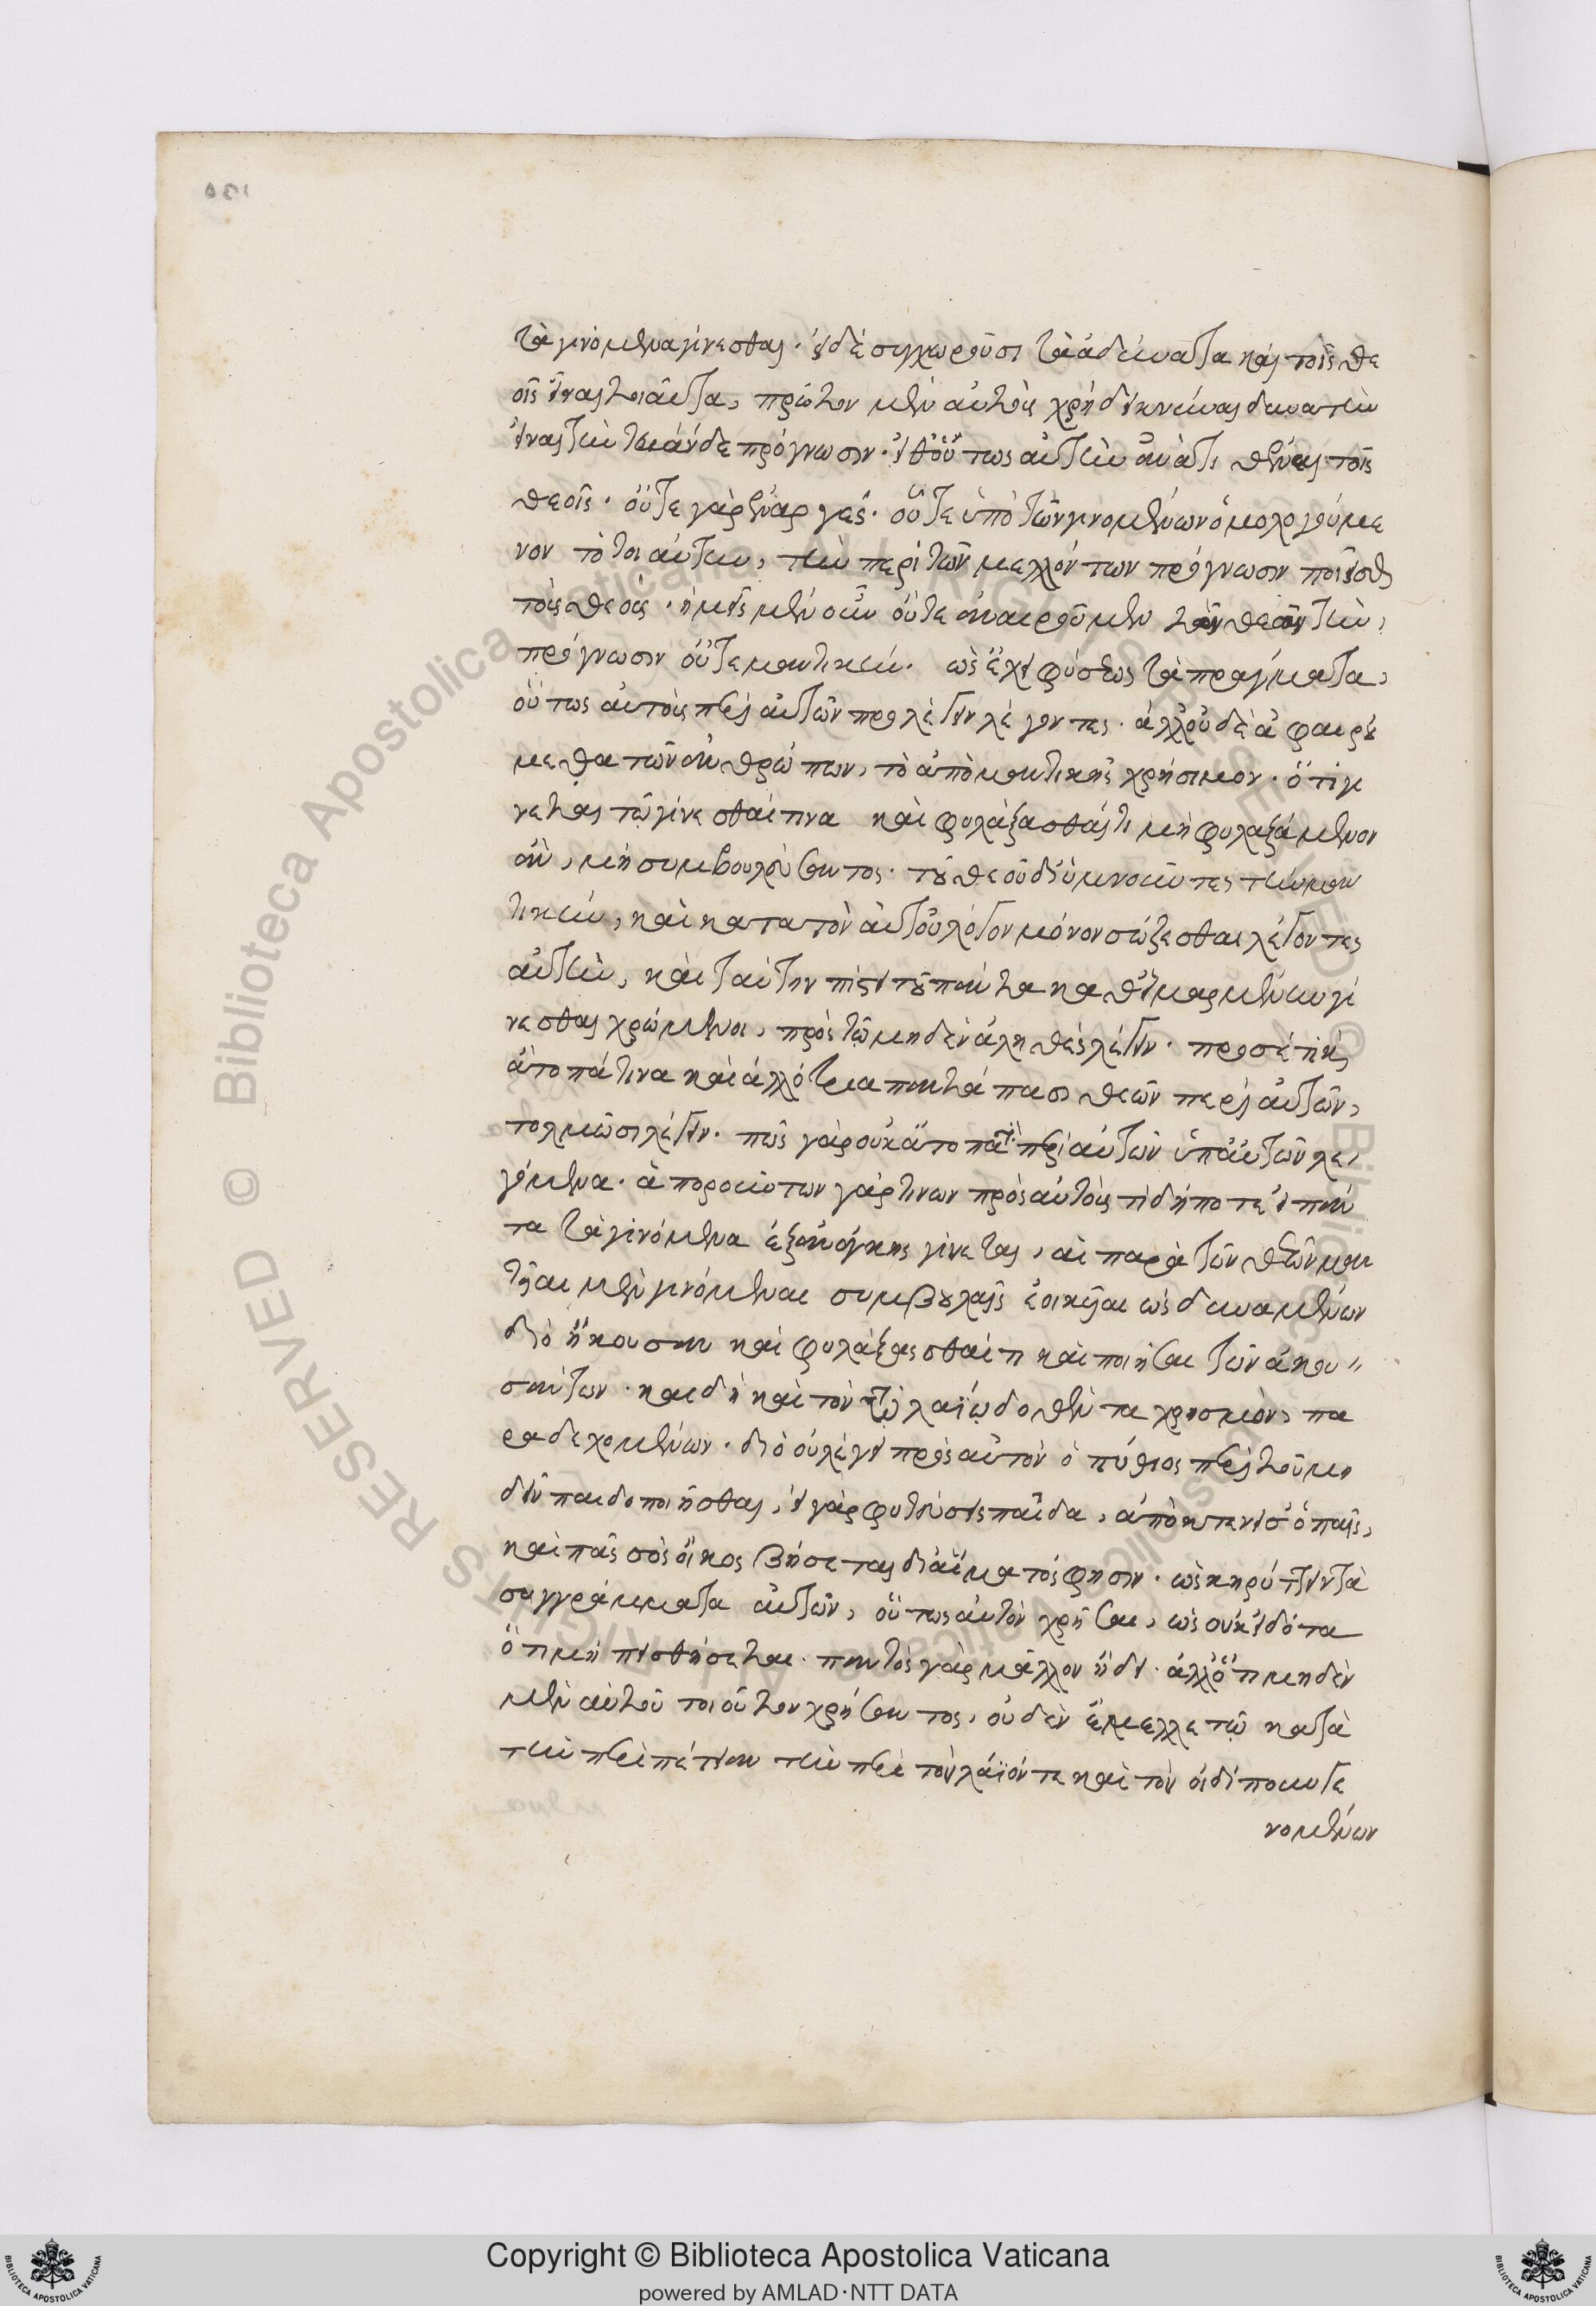 τὰ γινόμενα γίνεσθαι. εἰ δὲ συγχωροῦσι τὰ ἀδύνατα καὶ τοῖς θε
οῖς εἶναι τοιαῦτα, πρῶτον μὲν αὐτοὺς χρὴ δεικνύναι δυνατὴν
εἶναι τὴν τοιάνδε πρόγνωσιν. εἶθ' οὕτως αὐτὴν ἀνατιθέναι τοῖς
θεοῖς. οὔτε γὰρ ἐναργὲς. οὔτε ὑπὸ τῶν γινομένων ὁμολογούμε
νον τὸ τοιαύτην, τὴν περὶ τῶν μελλόντων πρόγνωσιν ποιεῖσθαι
τοὺς θεούς. ἡμεῖς μὲν οὖν οὔτε ἀναιροῦμεν τῶν θεῶν τὴν,
πρόγνωσιν οὔτε μαντικήν. ὡς ἔχει φύσεως τὰ πράγματα,
οὕτως αὐτοὺς περὶ αὐτῶν προλέγειν λέγοντες. ἀλλ' οὐδὲ ἀφαιρού
μεθα τῶν ἀνθρώπων, τὸ ἀπὸ μαντικῆς χρήσιμον. ὅ τι γι
νεται τῷ γίνεσθαί τινα καὶ φυλάξασθαί τι μὴ φυλαξάμενον
ἂν, μὴ συμβουλεύσαντος. τοῦ θεοῦ δι' ὑμνοῦντες τὴν μαν
τικὴν, καὶ κατα τὸν αὐτοῦ λόγον μόνον σώζεσθαι λέγοντες
αὐτὴν, καὶ ταύτην πίστει τοῦ πάντα καθ' εἱμαρμένην γί
νεσθαι χρώμενοι, πρὸς τῷ μηδὲν ἀληθὲς λέγειν. προσέτι καὶ
ἄτοπά τινα καὶ ἀλλότρια παντάπασι θεῶν περὶ αὐτῶν,
τολμῶσι λέγειν. πῶς γὰρ οὐκ ἄτοπα τὰ περὶ αὐτῶν ὑπ' αὐτῶν λε,
γόμενα. ἀπορούντων γάρ τινων πρὸς αὐτοὺς τί δήποτε εἰ πάν
τα τὰ γινόμενα ἐξ ἀνάγκης γίνεται, αἱ παρὰ τῶν θεῶν μαν
τεῖαι μὲν γινόμεναι συμβουλαῖς ἐοικυῖαι ὡς δυναμένων
δι' ὃ ἤκουσαν καὶ φυλάξασθαί τι καὶ ποιῆσαι τῶν ἀκου"
σάντων. καὶ δὴ καὶ τὸν τῷ λαΐῳ δοθέντα χρησμὸν, πα
ραδεχομένων. δι' ὃ οὗ λέγει πρὸς αὐτὸν ὁ πύθιος περὶ τοῦ μὴ
δεῖν παιδοποιεῖσθαι, εἰ γὰρ φυτεύσεις παῖδα, ἀποκτενεῖ σ' ὁ παῖς,
καὶ πᾶς σὸς οἶκος βήσεται δι' αἵματός φησιν. ὡς κηρύττειν τὰ
συγγράμματα αὐτῶν, οὕτως αὐτὸν χρῆσαι, ὡς οὐκ εἰδότα
ὅτι μὴ πεισθήσεται. παντὸς γὰρ μᾶλλον ᾔδει. ἀλλ' ὅτι μηδὲν
μὲν αὐτοῦ τοιοῦτον χρήσαντος, οὐδὲν ἔμελλε τῷ κατὰ
τὴν περιπέτειαν τὴν περὶ τὸν λάϊόν τε καὶ τὸν οἰδίπουν γε
νομένων
Copyright © Biblioteca Apostolica Vaticana
powered by AMLAD·NTT DATA